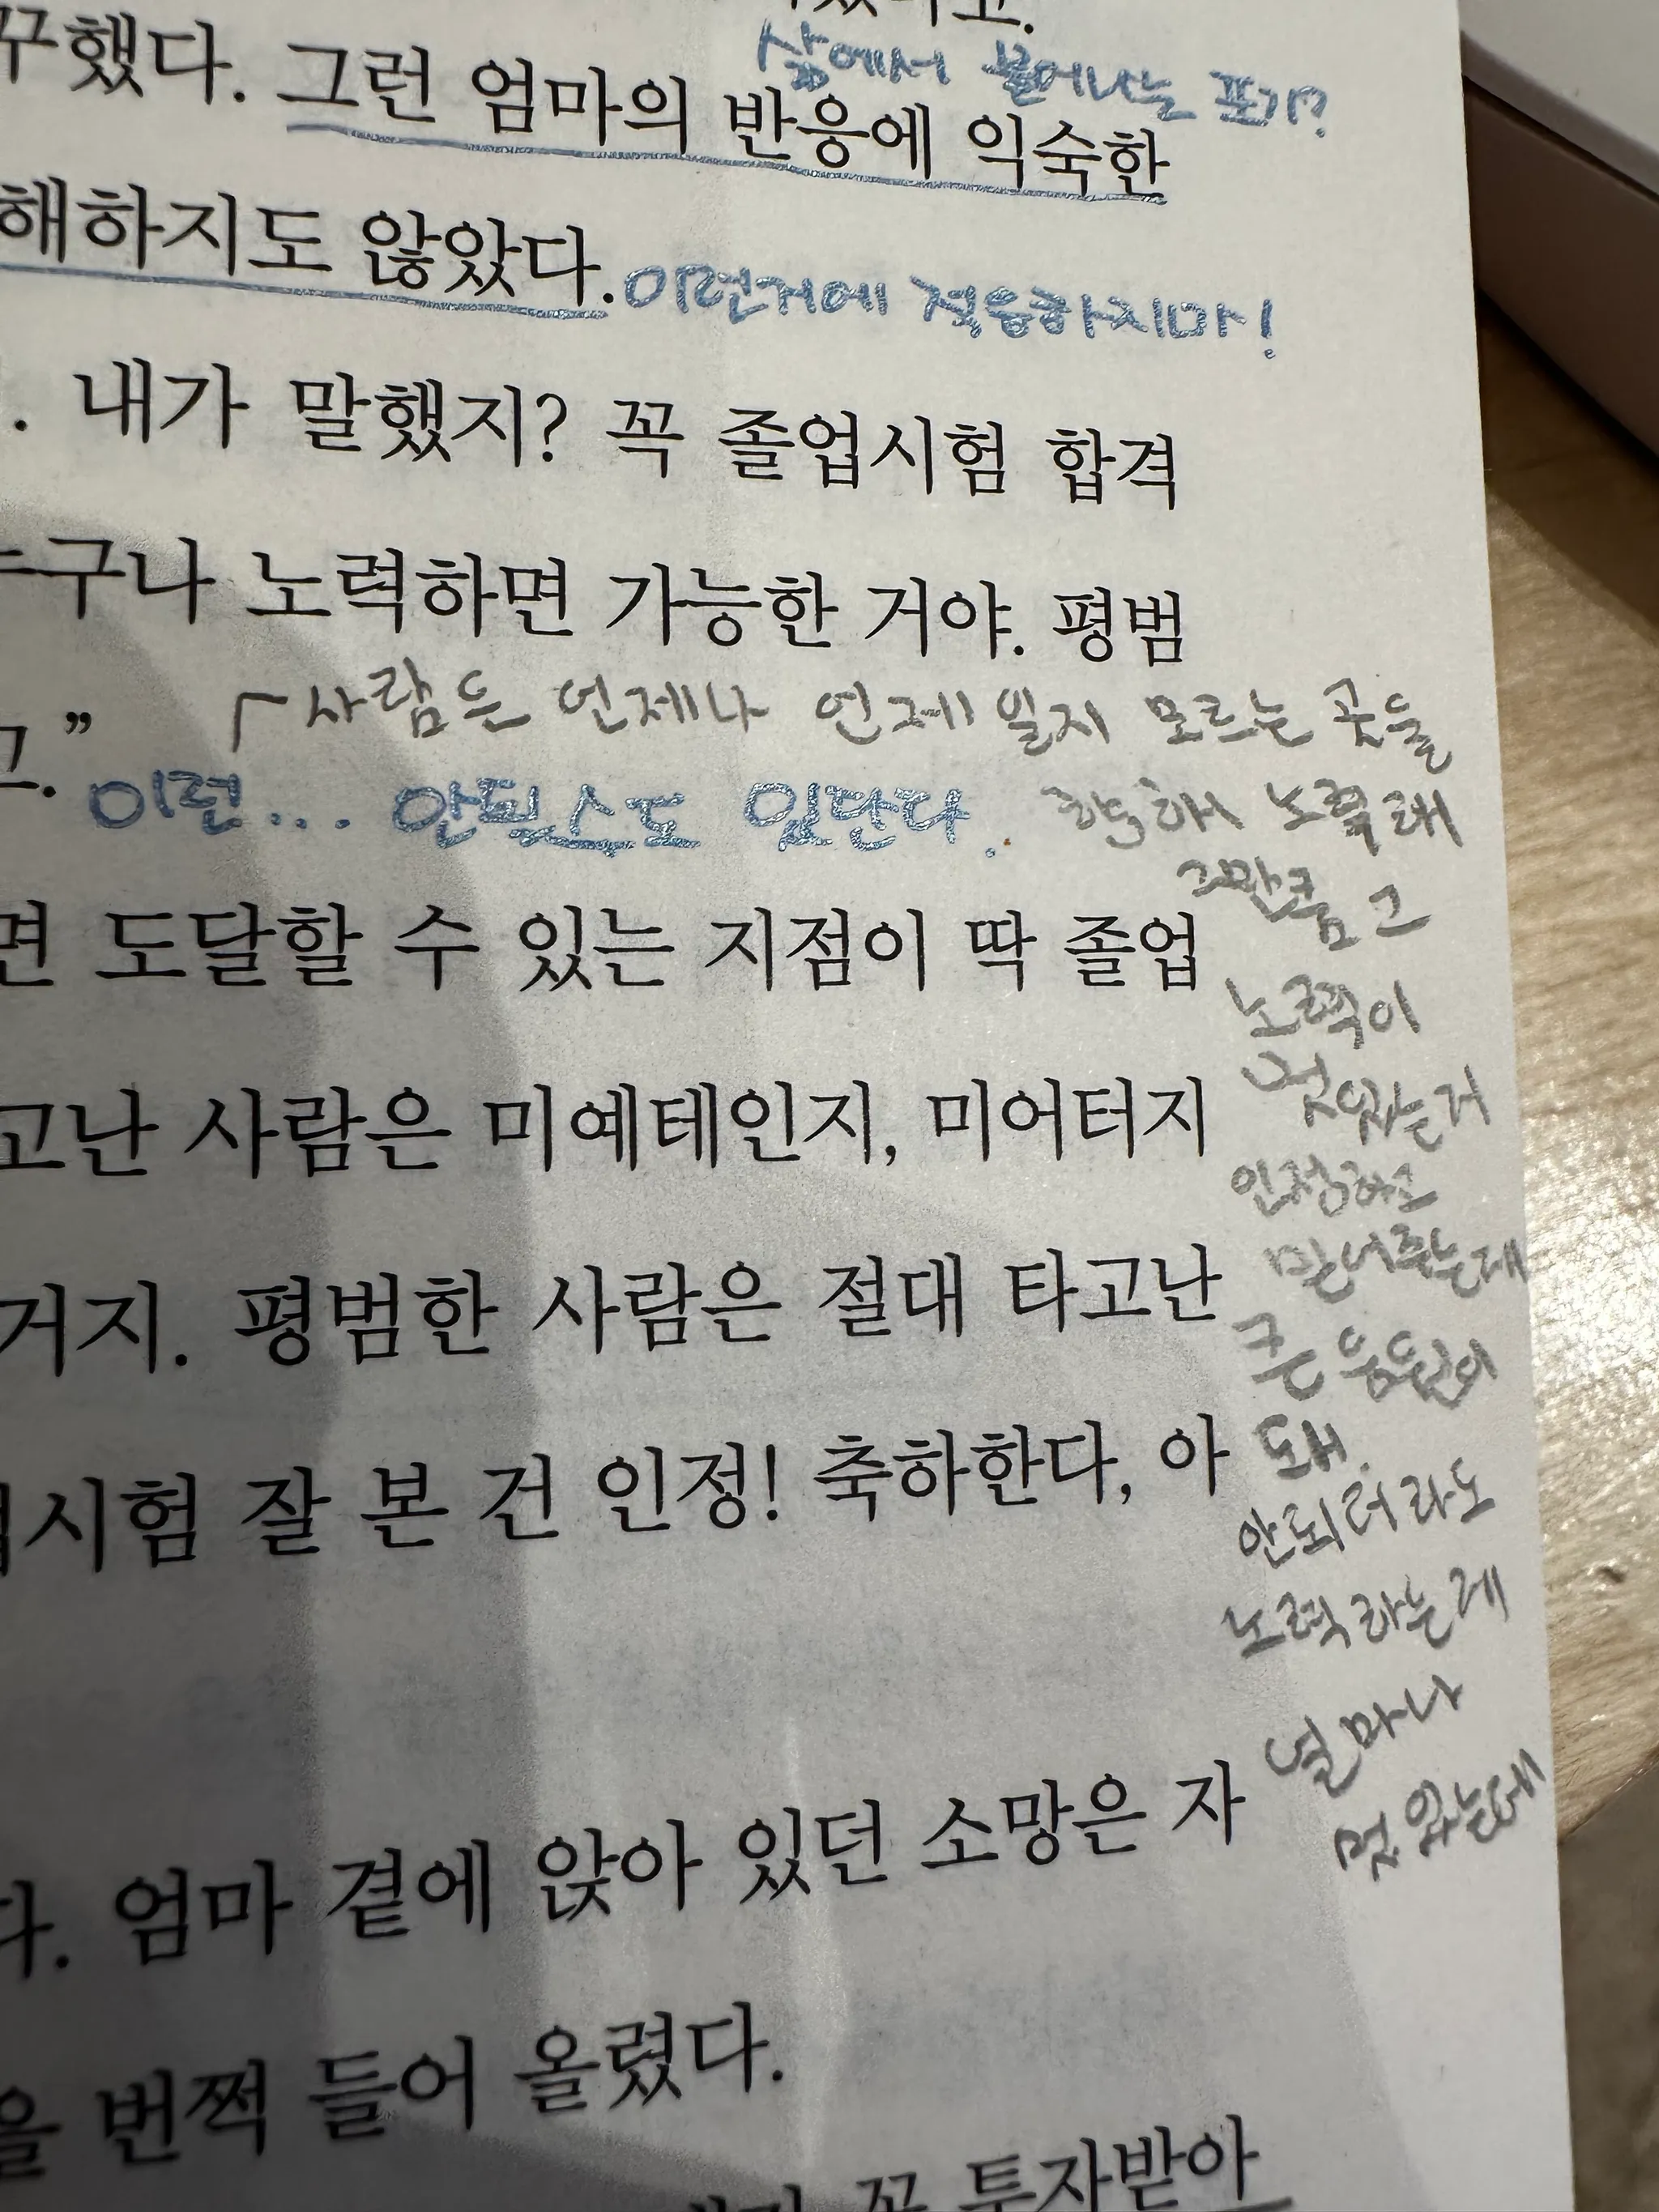 삶에서 묻어나는 포기?
꾸했다. 그런 엄마의 반응에 익숙한
해하지도 않았다. 이런거에 적응하지마!
. 내가 말했지? 꼭 졸업시험 합격
누구나 노력하면 가능한 거야. 평범
사람은 언제나 언제일지 모르는 곳을
고.”
이런... 안될스도 있단다.
향해 노력해
그만큼 그
노력이
멋있는거
인정하고
믿어주는게
큰 응원이
돼.
안되더라도
노력하는게
얼마나
멋있는데
면 도달할 수 있는 지점이 딱 졸업
고난 사람은 미예테인지, 미어터지
거지. 평범한 사람은 절대 타고난
시험 잘 본 건 인정! 축하한다, 아
다. 엄마 곁에 앉아 있던 소망은 자
을 번쩍 들어 올렸다.
꼭 투자받아